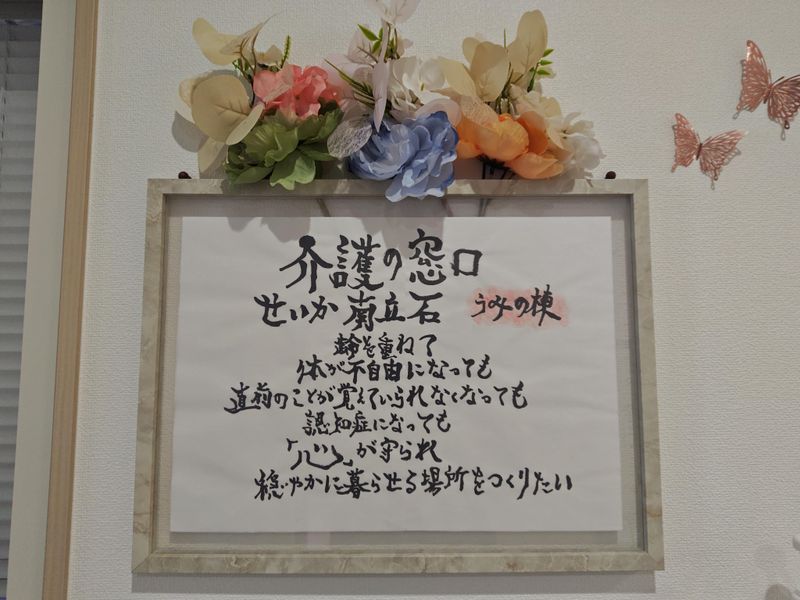 介護の窓口
せいか 南立石 うみの棟
齢を重ねて
体が不自由になっても
直前のことが覚えていられなくなっても
認知症になっても
「心」が守られ
穏やかに暮らせる場所をつくりたい